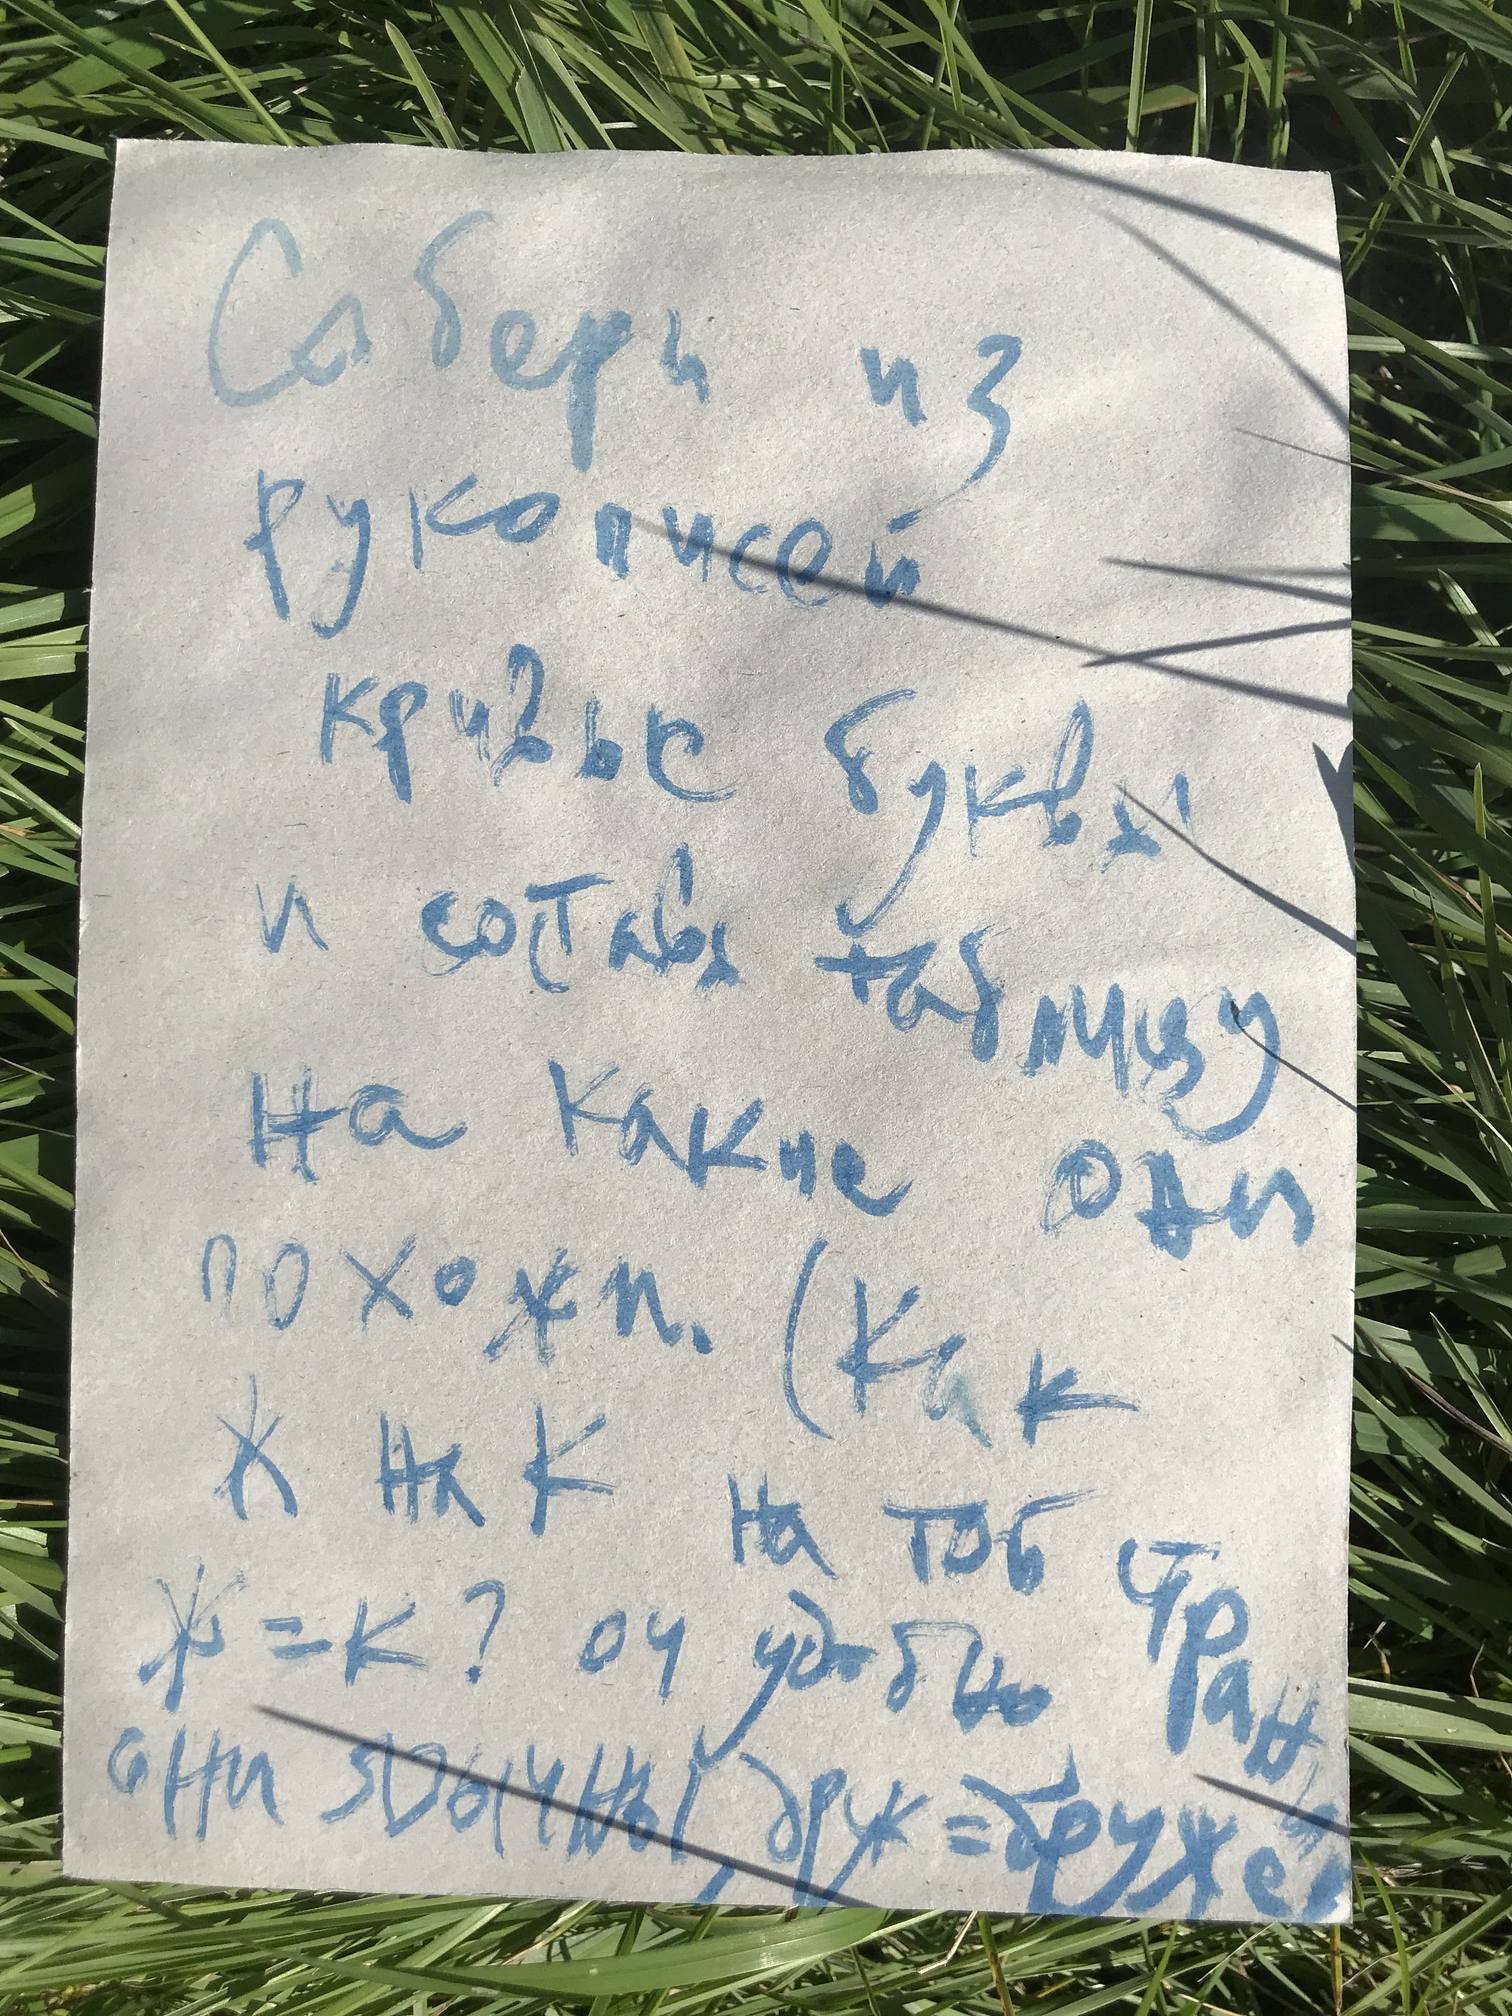 Собери из
рукописей
кривые буквы
и составь таблицу
на какие они
похожи. (как
Ж на К на тоб
Ж = К? оч удобно стран
они добычны, друж = дружес